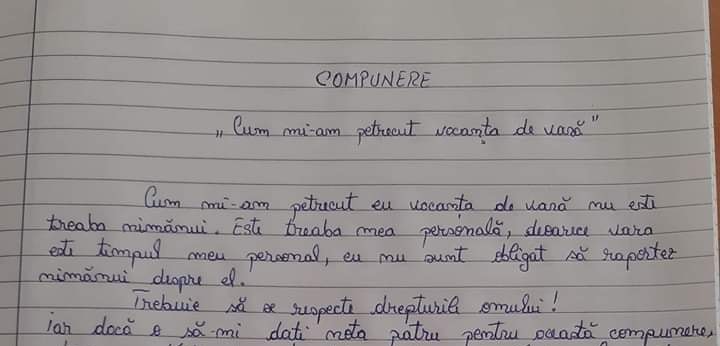 COMPUNERE
„Cum mi-am petrecut vacanța de vară"
Cum mi-am petrecut eu vacanța de vară nu este
treaba nimănui. Este treaba mea personală, deoarece vara
este timpul meu personal, eu nu sunt obligat să raportez
nimănui despre el.
Trebuie să se respecte drepturile omului!
iar dacă o să-mi dați nota patru pentru această compunere,